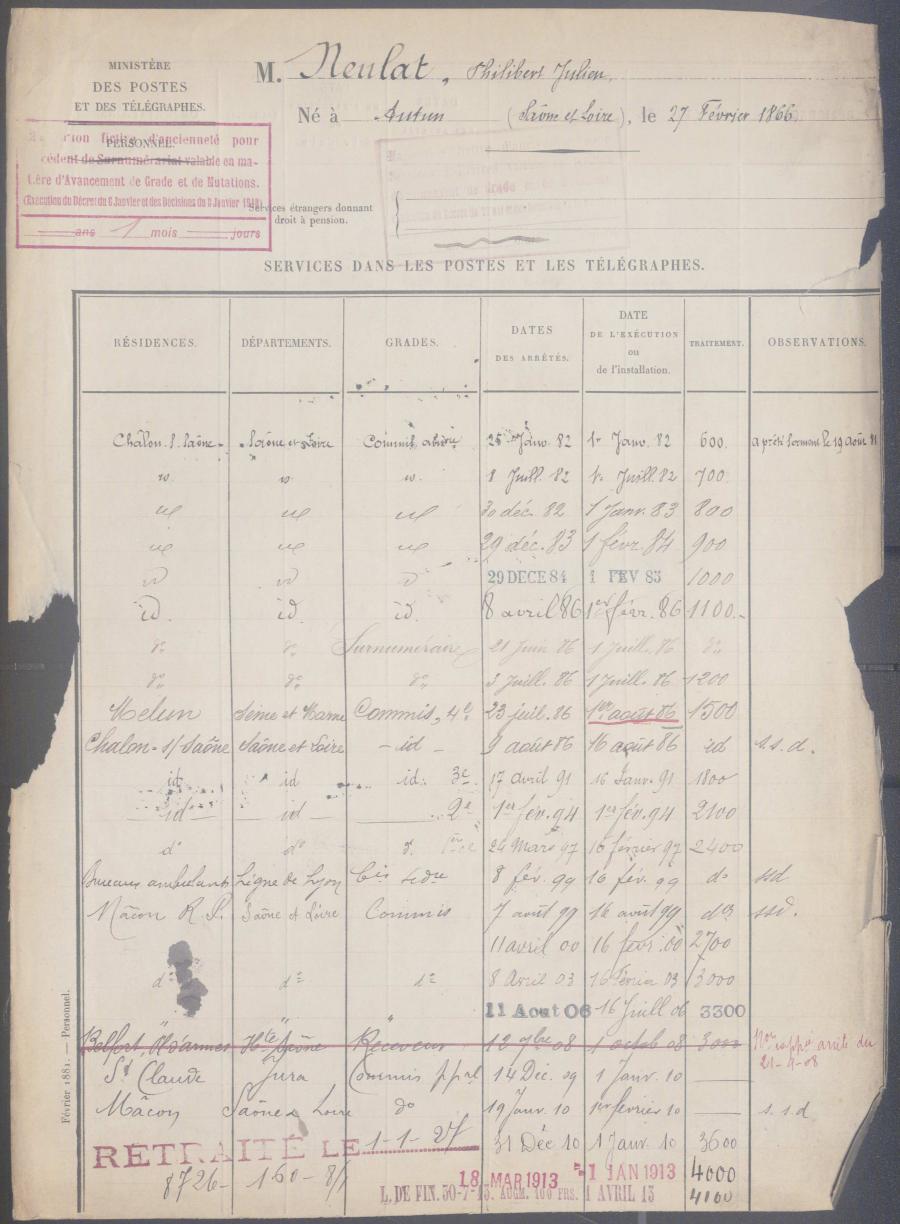 MINISTÈRE
DES POSTES
ET DES TÉLÉGRAPHES.
PERSONNEL.
M. Neulat, Philibert Julien,
Né à Autun (Saône et Loire), le 27 Février 1866
fictive d'ancienneté pour
de Surnumérariat valable en ma-
tière d'Avancement de Grade et de Mutations.
(Exécution du Décret du 6 Janvier et des Décisions du 9 Janvier
ans 1 mois jours
Services étrangers donnant
droit à pension.
SERVICES DANS LES POSTES ET LES TÉLÉGRAPHES.
RÉSIDENCES. DÉPARTEMENTS. GRADES. DATES DES ARRÊTÉS. DATE DE L'EXÉCUTION ou de l'installation. TRAITEMENT. OBSERVATIONS.
Châlon-s-Saône Saône et Loire Commis 25 Janv. 82 1er Janv. 82 600. a prêté serment le 19 août 81
id id id. 8 Juill. 82 1er Juill. 82 700.
id id id 30 déc. 82 1 Janv. 83 800
id id id 29 déc. 83 1 févr. 84 900
id id id 29 DECE 84 1 FEV 85 1000
id. id. id. 8 avril 86 1er févr. 86 1100.-
do do Surnuméraire 21 Juin 86 1 Juill. 86 do
do do do 3 Juill. 86 1 Juill. 86 1200
Melun Seine et Marne Commis, 4e. 23 juil. 86 1er août 86 1500
Chalon-s/-Saône Saône et Loire - id - 9 août 86 16 août 86 id s.s.d.
id id id: 3e 17 avril 91 16 Janv. 91 1800
id id 2e 1er fév. 94 1er fév. 94 2100
do do do 24 Mars 97 16 février 97 2400
Bureaux ambulants Ligne de Lyon Cis 8 fév. 99 16 fév. 99 do ssd
Mâcon R.P. Saône et Loire Commis 7 août 99 16 août 99 do ssd.
11 avril 00 16 févr. 00 2700
do do do 8 Avril 03 16 Février 03 3000
11 Aout 06 16 Juill 06 3300
Belfort, Hte Saône Receveur 12 7bre 08 1 octob 08 3000 Non rapp. arrêté du
21-9-08
St Claude Jura Commis ppal 14 Déc. 09 1 Janv. 10 —
Mâcon Saône & Loire do 19 Janv. 10 1er février 10 — s.s.d
31 Déc 10 1 Janv. 10 3600
RETRAITÉ LE 1-1-27
8726 - 160 - 18 MAR 1913 1 JAN 1913 4000
L. DE FIN. 30-7-13. AUGM. 100 FRS. 1 AVRIL 13 4100
Février 1881. — Personnel.